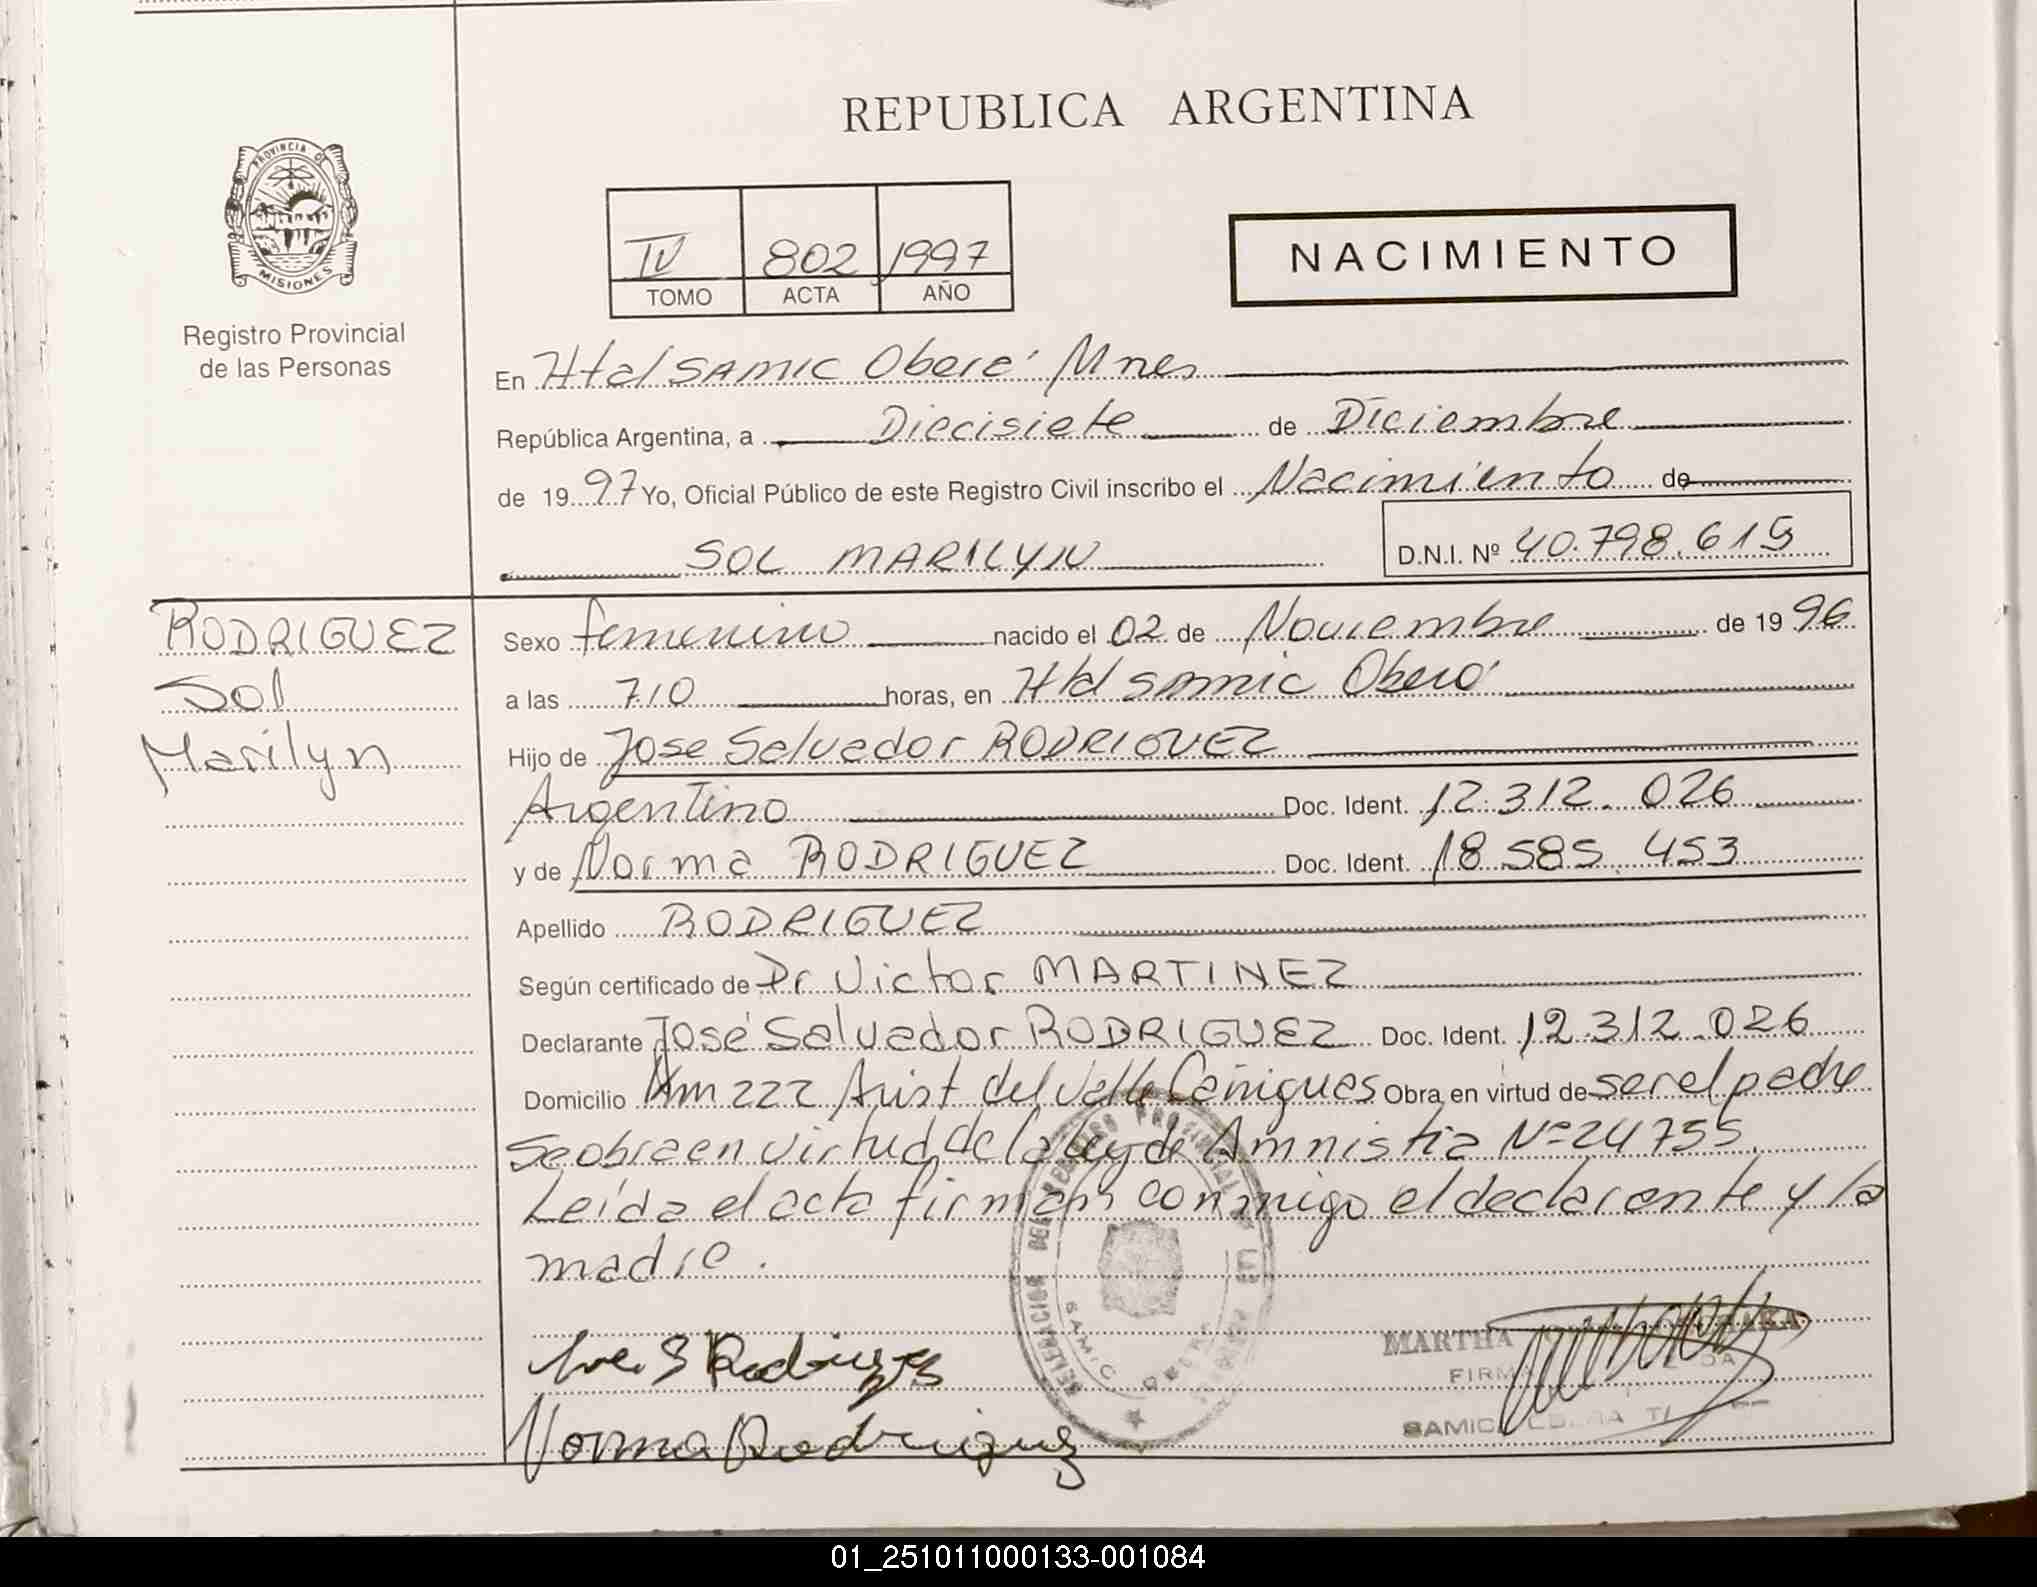 REPUBLICA ARGENTINA
PROVINCIA DE
MISIONES
Registro Provincial
de las Personas
IV 802 1997
TOMO ACTA AÑO
NACIMIENTO
En Htal SAMIC Oberá Mnes
República Argentina, a Diecisiete de Diciembre
de 1997 Yo, Oficial Público de este Registro Civil inscribo el Nacimiento de
SOL MARILYN
D.N.I. Nº 40.798.615
RODRIGUEZ
Sol
Marilyn
Sexo femenino nacido el 02 de Noviembre de 1996
a las 7.10 horas, en Htal SAMIC Oberá
Hijo de Jose Salvador RODRIGUEZ
Argentino Doc. Ident. 12.312.026
y de Norma RODRIGUEZ Doc. Ident. 18.585.453
Apellido RODRIGUEZ
Según certificado de Dr Victor MARTINEZ
Declarante José Salvador RODRIGUEZ Doc. Ident. 12.312.026
Domicilio Km 222 Arist del Valle Cainguas Obra en virtud de ser el padre
Se obra en virtud de la ley de Amnistia Nº 24755
Leída el acta firman conmigo el declarante y la
madre.
Jose S Rodriguez
Norma Rodriguez
DELEGACION DEL REGISTRO PROVINCIAL DE
SAMIC OBERA
MARTHA
FIRMA
SAMIC OBERA
01_251011000133-001084